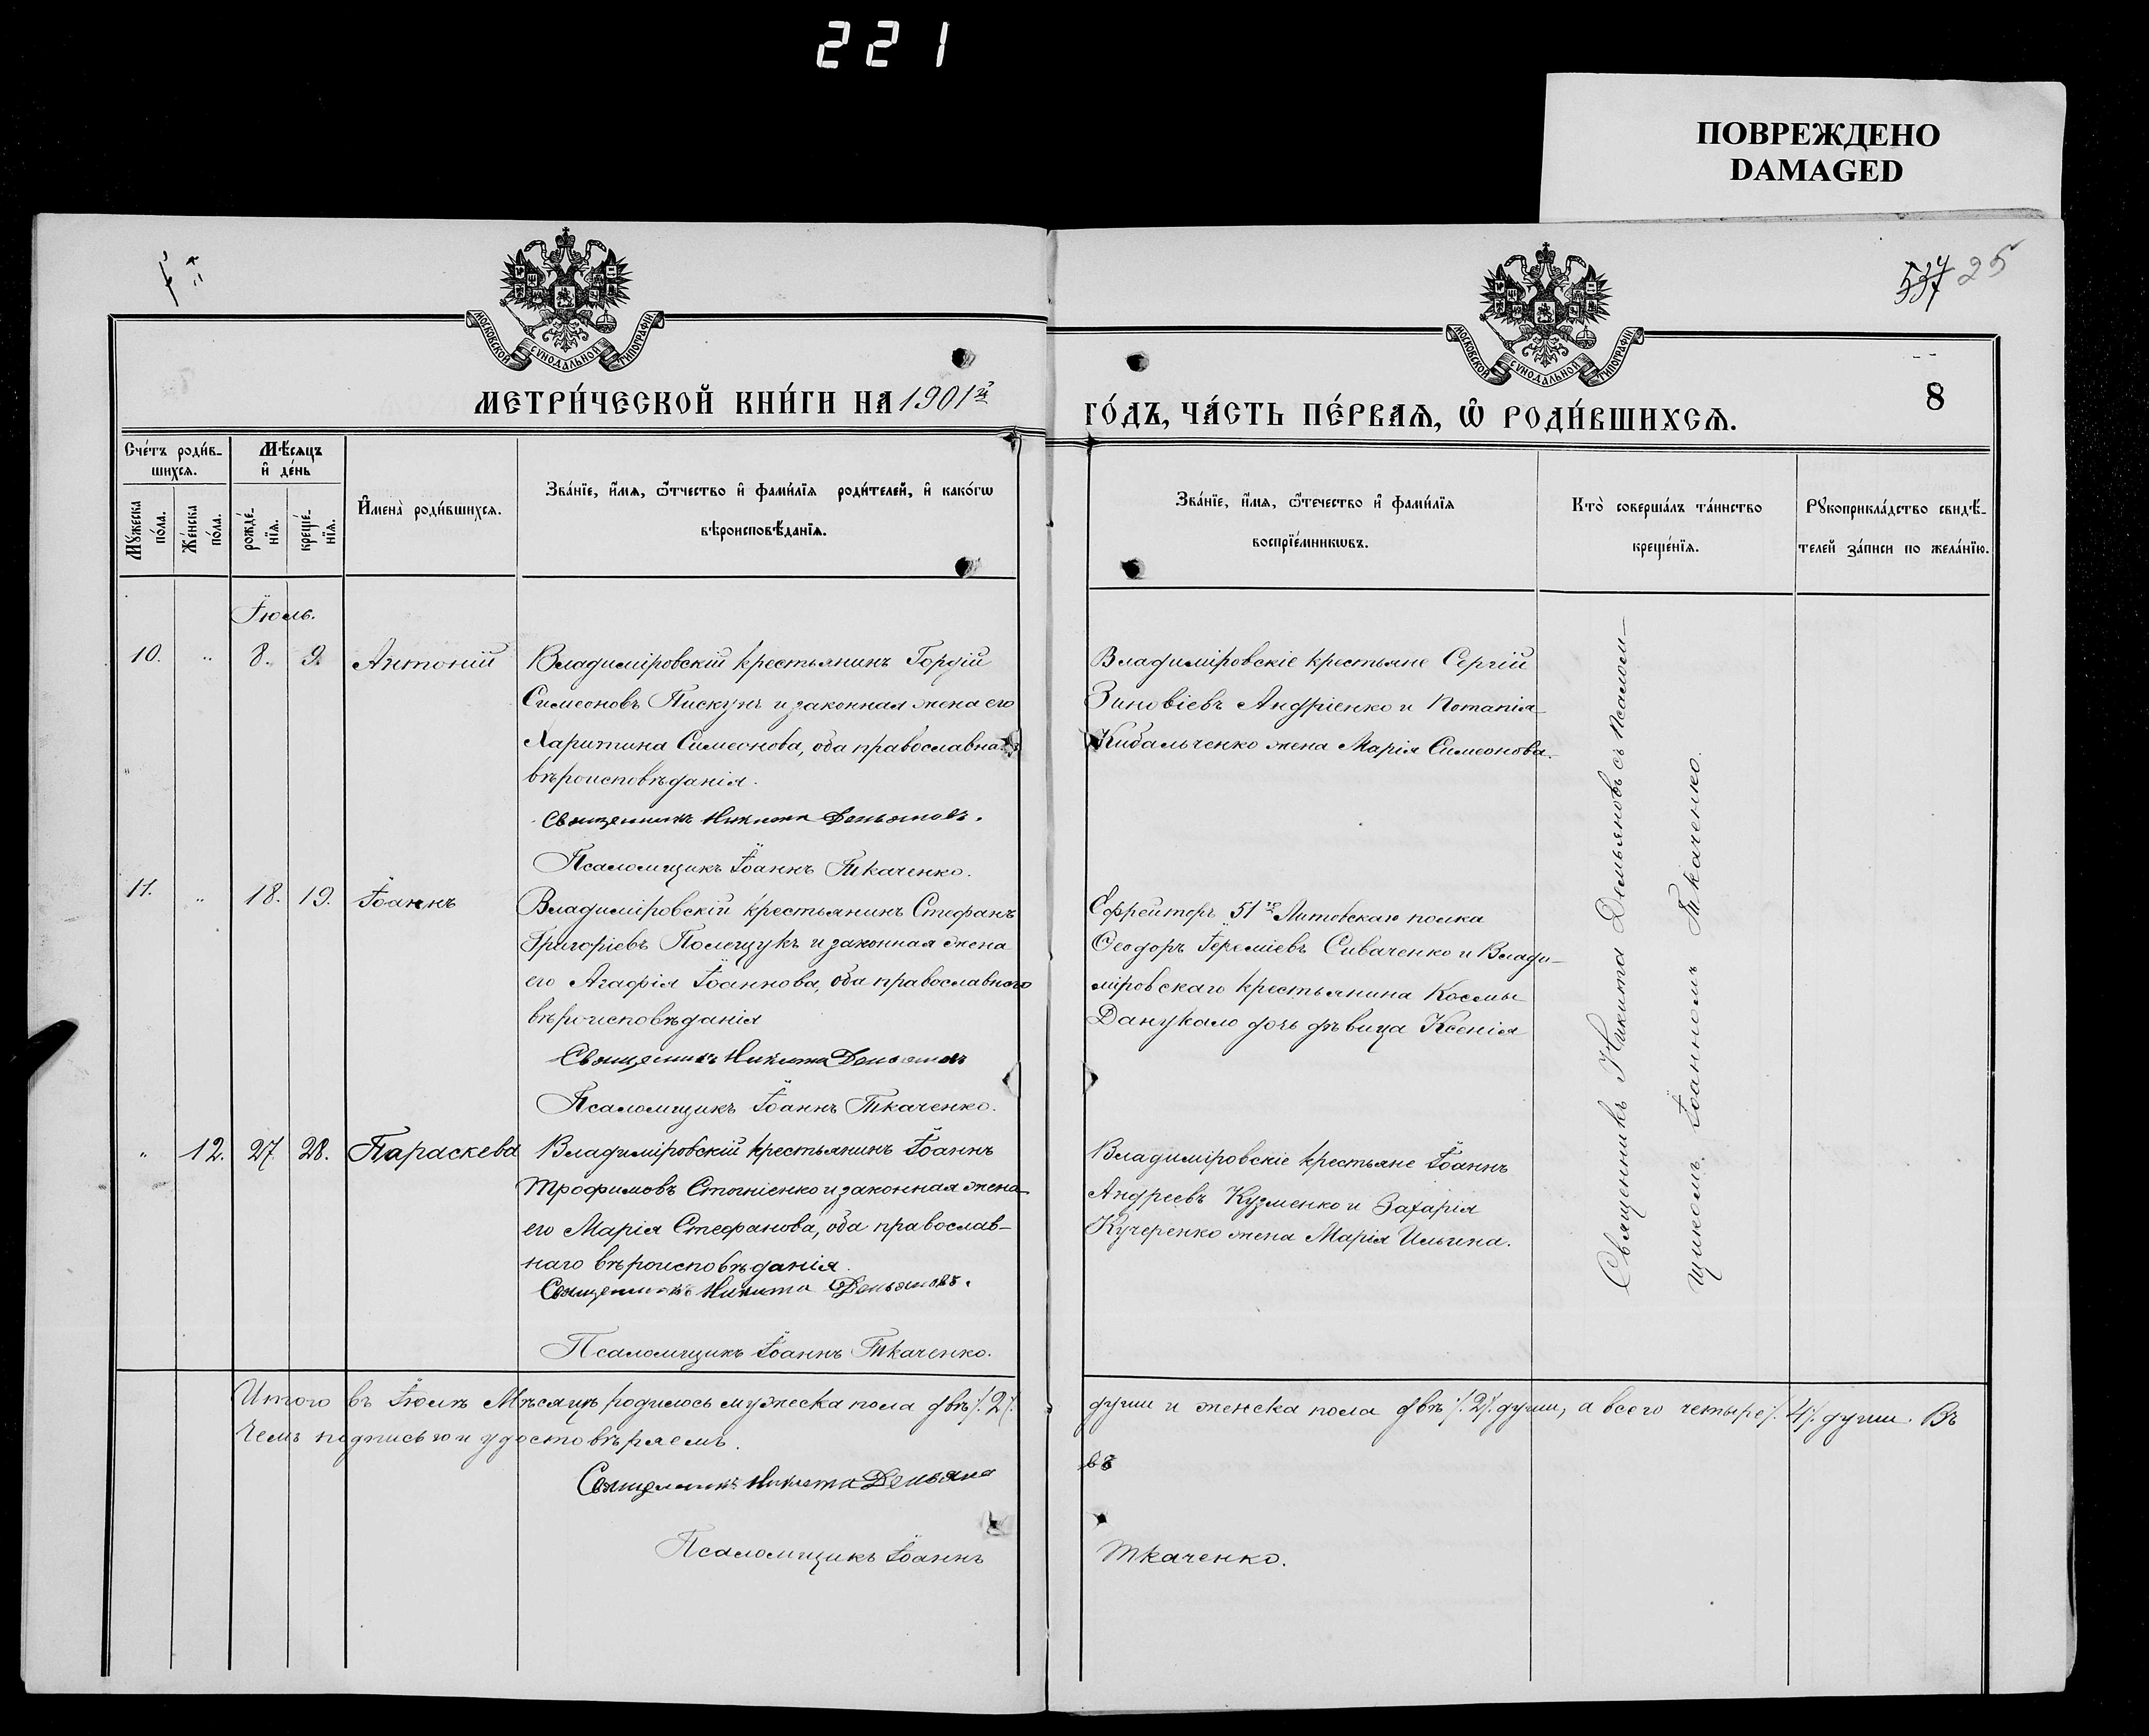 221
ПОВРЕЖДЕНО
DAMAGED
537 25
МОСКОВСКОЙ СѴНОДАЛЬНОЙ ТИПОГРАФІИ
МОСКОВСКОЙ СѴНОДАЛЬНОЙ ТИПОГРАФІИ
МЕТРИ́ЧЕСКОЙ КНИ́ГИ НА 1901й
ГО́ДЪ, ЧА́СТЬ ПЕ́РВАѦ, Ѡ҆ РОДИ́ВШИХСѦ.
8
Сче́тъ роди́в-
шихсѧ.
Мѣ́сѧцъ
и҆ де́нь
Мꙋ́жеска
по́ла.
Же́нска
по́ла.
рожде́-
нїѧ.
креще́-
нїѧ.
И҆мена̀ роди́вшихсѧ.
Зва́нїе, и҆́мѧ, ѻ҆́тчество и҆ фами́лїѧ роди́телей, и҆ како́гѡ
вѣроисповѣ́данїѧ.
Зва́нїе, и҆́мѧ, ѻ҆́течество и҆ фами́лїѧ
воспрїе́мникѡвъ.
Кто̀ соверша́лъ та́инство
креще́нїѧ.
Рꙋкоприкла́дство свидѣ́-
телей за́писи по жела́нїю.
Іюль.
10. " 8. 9. Антоній
Владиміровскій крестьянинъ Гордій
Симеоновъ Пискунъ и законная жена его
Харитина Симеонова, оба православна
вѣроисповѣданія.
Священникъ Никита Демьяновъ.
Псаломщикъ Іоаннъ Ткаченко.
Владиміровскіе крестьяне Сергій
Зиновіевъ Андріенко и Потапія
Кибальченко жена Марія Симеонова.
11. " 18. 19. Іоаннъ
Владиміровскій крестьянинъ Стефанъ
Григоріевъ Полещукъ и законная жена
его Агафія Іоаннова, оба православного
вѣроисповѣданія
Священникъ Никита Демьяновъ
Псаломщикъ Іоаннъ Ткаченко.
Ефрейторъ 51го Литовскаго полка
Ѳеодоръ Іереміевъ Сиваченко и Влади-
міровскаго крестьянина Космы
Данукало дочь дѣвица Ксенія
" 12. 27. 28. Параскева
Владиміровскій крестьянинъ Іоаннъ
Трофимовъ Стогніенко и законная жена
его Марія Стефанова, оба православ-
наго вѣроисповѣданія.
Священникъ Никита Демьяновъ.
Псаломщикъ Іоаннъ Ткаченко.
Владиміровскіе крестьяне Іоаннъ
Андреевъ Кузменко и Захарія
Кучеренко жена Марія Ильина.
Священникъ Никита Демьяновъ съ псалом-
щикомъ Іоанномъ Ткаченко.
Итого въ Іюлѣ Мѣсяцѣ родилось мужеска пола двѣ /. 2 /. души и женска пола двѣ /. 2 /. души, а всего четыре /. 4 /. души. Въ
чемъ подписью и удостовѣряемъ.
Священникъ Никита Демьяно въ
Псаломщикъ Іоаннъ Ткаченко.